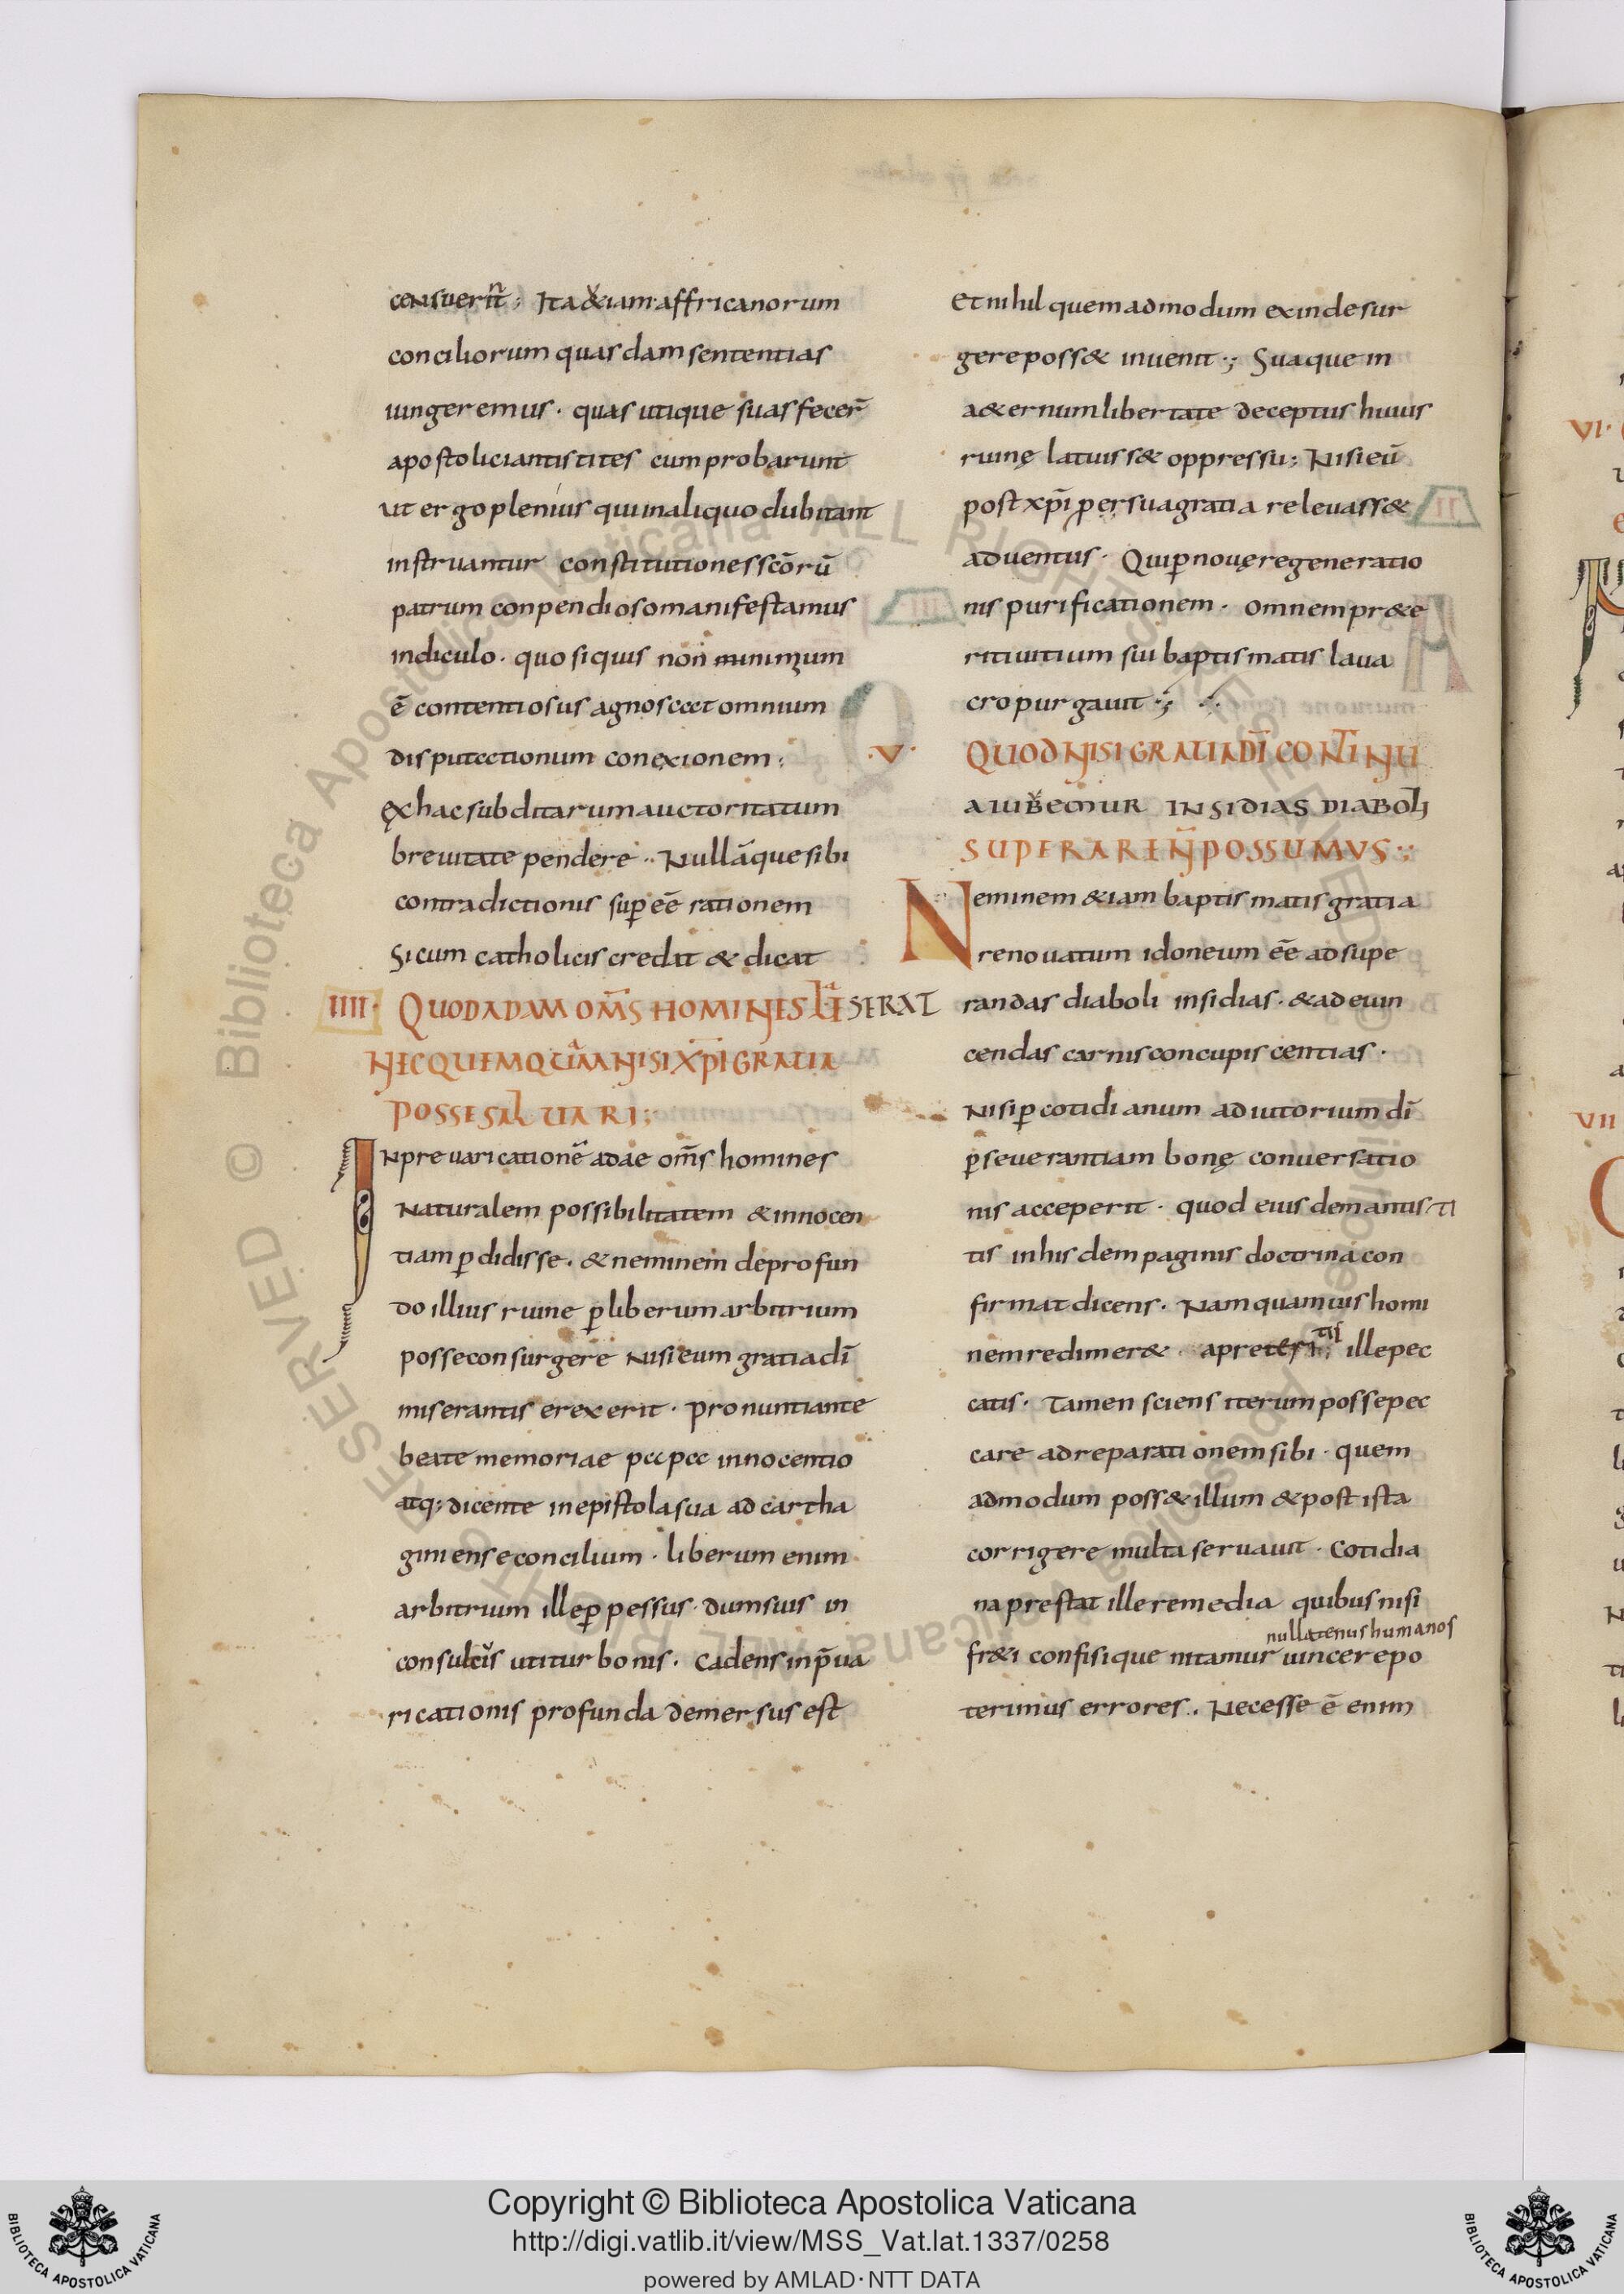 censuerit̄; Ita & iam affricanorum
conciliorum quasdam sententias
iungeremus. quas utique suas fecer̄
apostolici antistites cum probarunt
ut ergo plenius qui in aliquo dubitant
instruantur constitutiones sc̄ōrū
patrum conpendioso manifestamus
indiculo. quo si quis non minimum
ē contentiosus agnoscat omnium
disputationum conexionem;
ęx hac subditarum auctoritatum
brevitate pendere. Nullāque sibi
contradictionis sup̄ eē rationem
Si cum catholicis credat & dicat
IIII. QUOD ADAM OM̄S HOMINES LESERAT
NEC QUEMQUAM NISI XP̄I GRATIA
POSSE SALUARI;
IN prevaricationē adae om̄s homines
Naturalem possibilitatem & innocen
tiam p̄didisse. & neminem de profun
do illius ruine p̄ liberum arbitrium
posse consurgere Nisi eum gratia dī
miserantis erexerit. pronuntiante
beate memoriae innocentio
atq; dicente in epistola sua ad cartha
giniense concilium. liberum enim
arbitrium ille p̄pessus. dum suis in
consultius utitur bonis. cadens in p̄ua
ricationis profunda demersus est
Et nihil quemadmodum exinde sur
gere poss& invenit; Suaque in
a&ernum libertate deceptus huius
ruinę latuiss& oppressu; Nisi eū
post xp̄i per sua gratia relevass&
adventus. Qui p̄ novę regeneratio
nis purificationem. omnem pr&e
riti vitium sui baptismatis lava
cro purgavit;
V. QUOD NISI GRATIA DĪ CONTINU
A IUBEMUR INSIDIAS DIABOLI
SUPERARE N̄ POSSUMUS:
Neminem &iam baptismatis gratia
renovatum idoneum eē ad supe
randas diaboli insidias. & ad evin
cendas carnis concupiscentias.
Nisi p̄ cotidianum adiutorium dī
p̄severantiam bonę conversatio
nis acceperit. quod eiusdem antis ti
tis in hisdem paginis doctrina con
firmat dicens. Nam quamvis homi
nem redimer& a preteri tis ille pec
catis. Tamen sciens iterum posse pec
care ad reparationem sibi. quem
admodum poss& illum & post ista
corrigere multa servavit. Cotidia
na prestat ille remedia quibus nisi
nullatenus humanos
fr&i confisique nitamur vincere po
terimus errores. Necesse ē enim
VI.
VII
Copyright © Biblioteca Apostolica Vaticana
http://digi.vatlib.it/view/MSS_Vat.lat.1337/0258
powered by AMLAD·NTT DATA
BIBLIOTECA APOSTOLICA VATICANA
BIBLIOTECA APOSTOLICA VATICANA